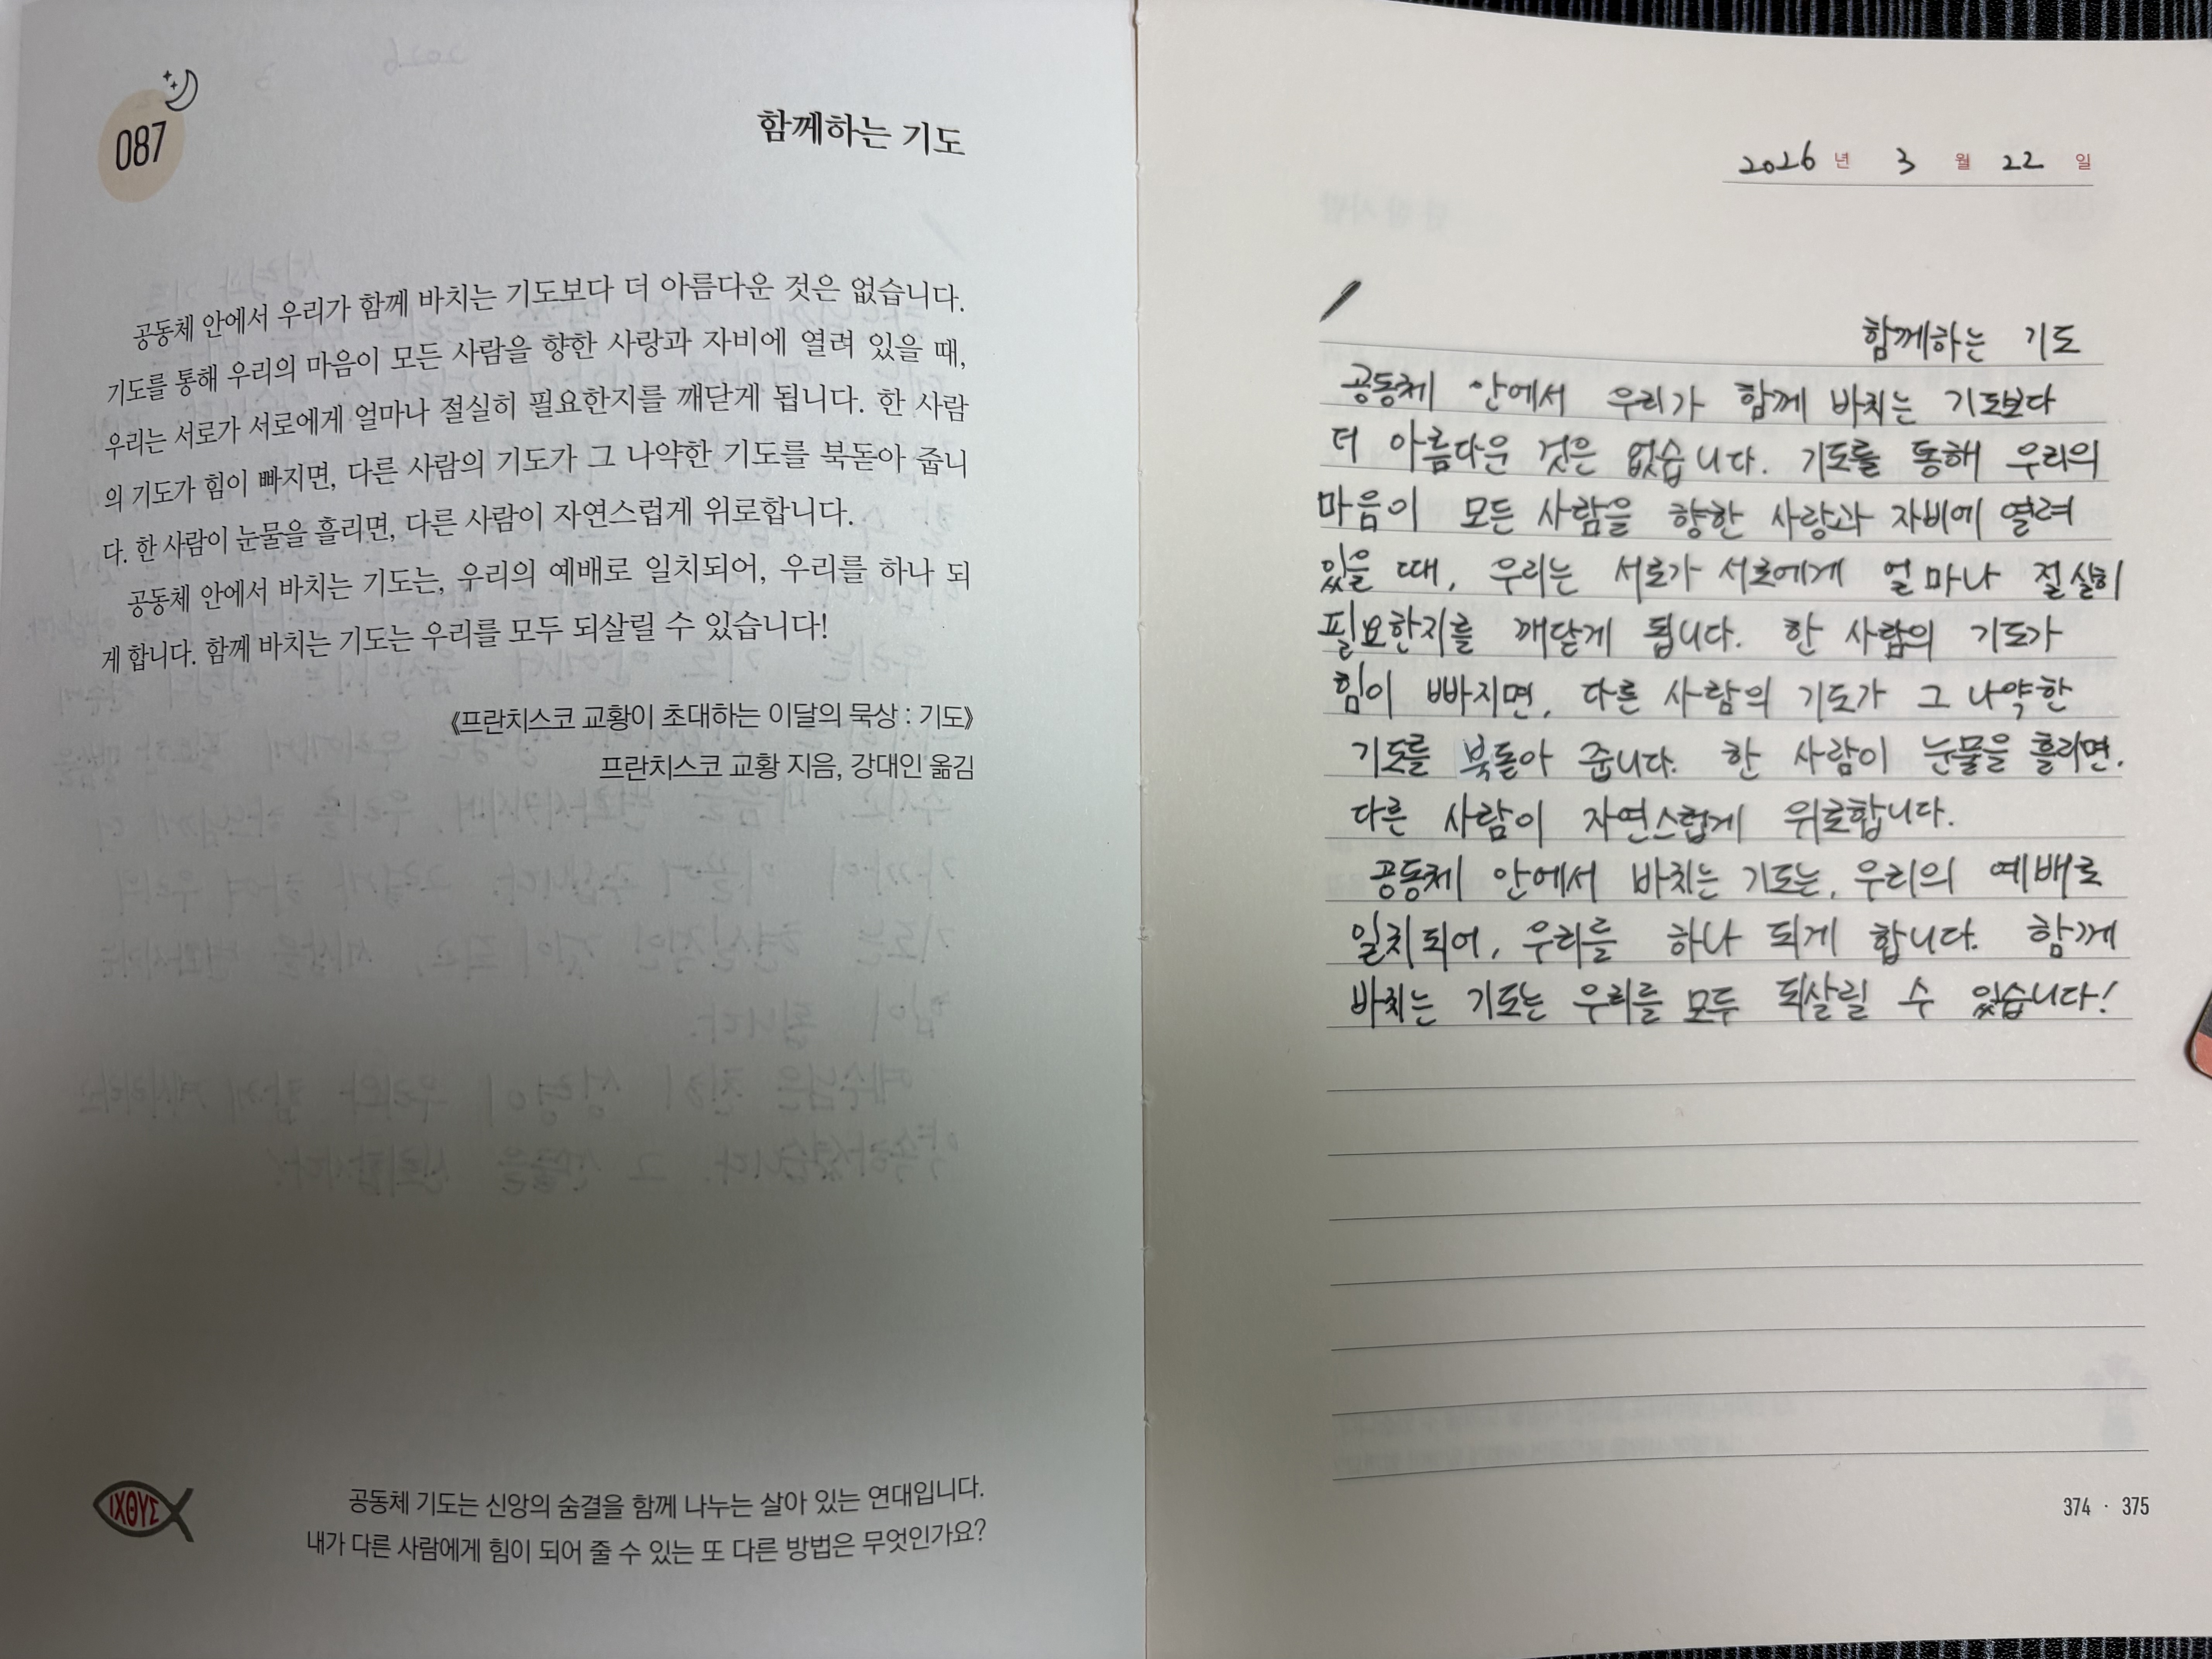 087
함께하는 기도
공동체 안에서 우리가 함께 바치는 기도보다 더 아름다운 것은 없습니다.
기도를 통해 우리의 마음이 모든 사람을 향한 사랑과 자비에 열려 있을 때,
우리는 서로가 서로에게 얼마나 절실히 필요한지를 깨닫게 됩니다. 한 사람
의 기도가 힘이 빠지면, 다른 사람의 기도가 그 나약한 기도를 북돋아 줍니
다. 한 사람이 눈물을 흘리면, 다른 사람이 자연스럽게 위로합니다.
공동체 안에서 바치는 기도는, 우리의 예배로 일치되어, 우리를 하나 되
게 합니다. 함께 바치는 기도는 우리를 모두 되살릴 수 있습니다!
《프란치스코 교황이 초대하는 이달의 묵상 : 기도》
프란치스코 교황 지음, 강대인 옮김
ΙΧΘΥΣ
공동체 기도는 신앙의 숨결을 함께 나누는 살아 있는 연대입니다.
내가 다른 사람에게 힘이 되어 줄 수 있는 또 다른 방법은 무엇인가요?
2026 년 3 월 22 일
함께하는 기도
공동체 안에서 우리가 함께 바치는 기도보다
더 아름다운 것은 없습니다. 기도를 통해 우리의
마음이 모든 사람을 향한 사랑과 자비에 열려
있을 때, 우리는 서로가 서로에게 얼마나 절실히
필요한지를 깨닫게 됩니다. 한 사람의 기도가
힘이 빠지면, 다른 사람의 기도가 그 나약한
기도를 북돋아 줍니다. 한 사람이 눈물을 흘리면,
다른 사람이 자연스럽게 위로합니다.
공동체 안에서 바치는 기도는, 우리의 예배로
일치되어, 우리를 하나 되게 합니다. 함께
바치는 기도는 우리를 모두 되살릴 수 있습니다!
374 · 375